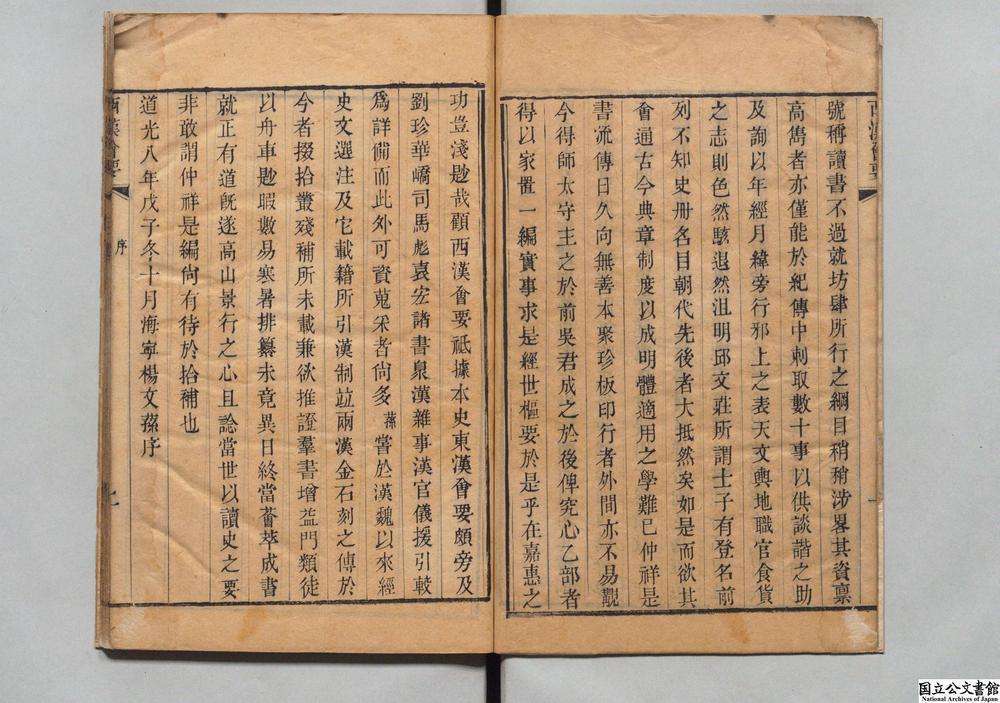 兩漢會要
號稱讀書不過就坊肆所行之綱目稍稍涉畧其資禀
高雋者亦僅能於紀傳中刺取數十事以供談諧之助
及詢以年經月緯旁行邪上之表天文輿地職官食貨
之志則色然駭退然沮明邱文莊所謂士子有登名前
列不知史册名目朝代先後者大抵然矣如是而欲其
會通古今典章制度以成明體適用之學難已仲祥是
書流傳日久向無善本聚珍板印行者外間亦不易覯
今得師太守主之於前吳君成之於後俾究心乙部者
得以家置一編實事求是經世樞要於是乎在嘉惠之
功豈淺尠哉顧西漢會要祗據本史東漢會要頗旁及
劉珍華嶠司馬彪袁宏諸書臮漢雜事漢官儀援引較
爲詳備而此外可資蒐采者尙多蓀嘗於漢魏以來經
史文選注及它載籍所引漢制竝兩漢金石刻之傳於
今者掇拾叢殘補所未載兼欲推證羣書增益門類徒
以舟車尠暇數易寒暑排纂未竟異日終當薈萃成書
就正有道旣遂高山景行之心且諗當世以讀史之要
非敢謂仲祥是編尙有待於拾補也
道光八年戊子冬十月海寧楊文蓀序
兩漢會要
序
国立公文書館
National Archives of Japan